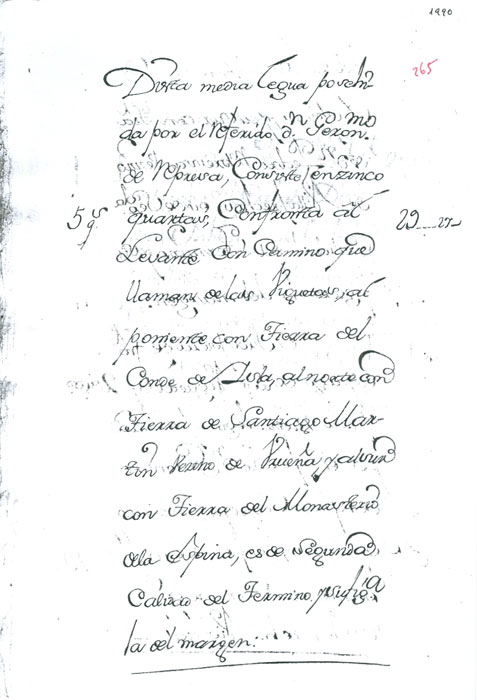 1990
265
Dista media legua posehi-
da por el Referido dn Geronmo
de Represa, Consiste enzinco
5 qs quartas, Confronta al 29__27
Levante Con Camino que
llaman de las Viquetas, al
poniente con Tierra del
Conde de Isla, al norte con
Tierra de Santiago Mar-
tin Vezino de Urueña y al sur
con Tierra del Monasterio
de la Espina, es de Segunda
Calidad del Termino y su figa
la del margen.